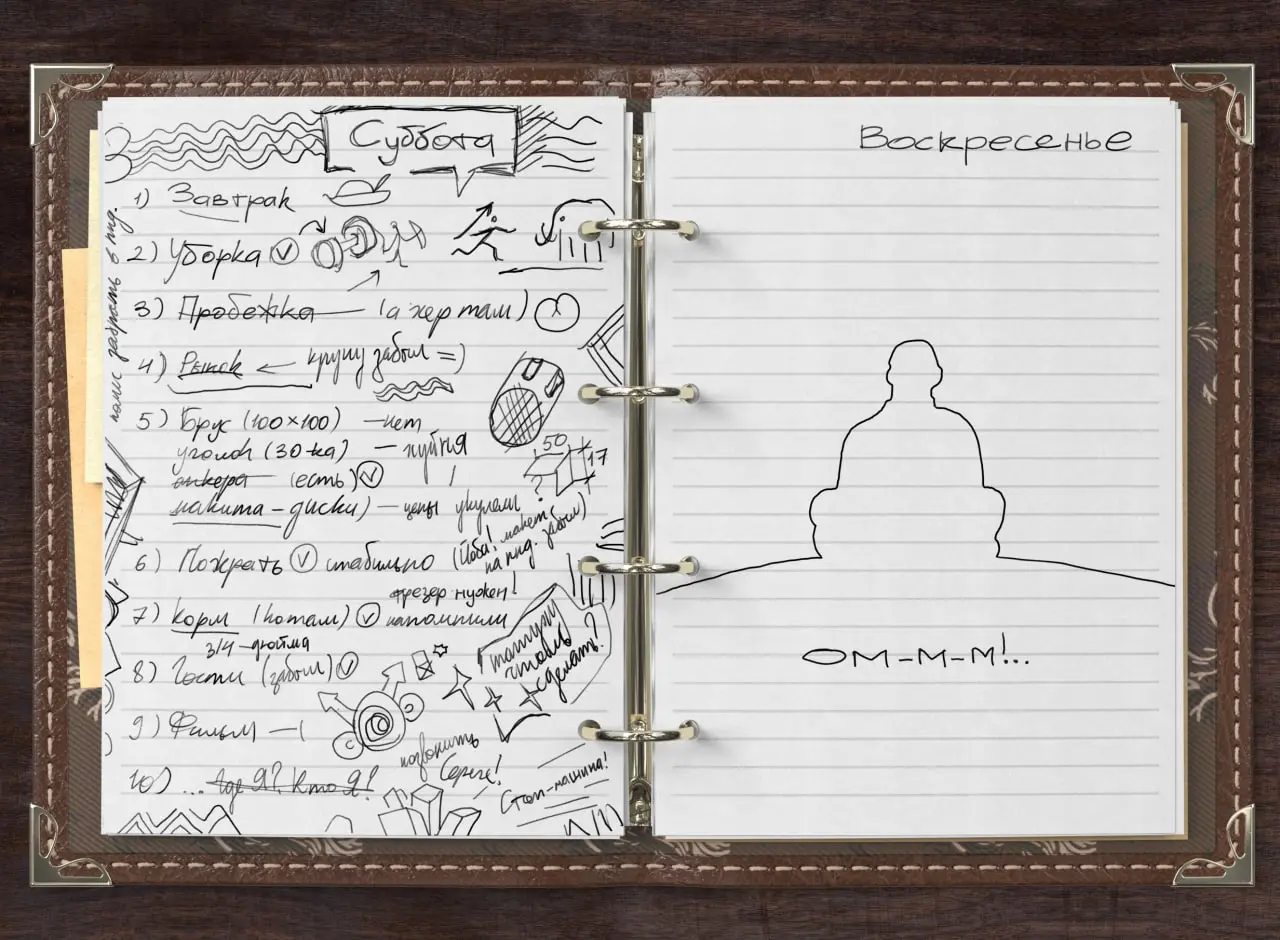 Суббота
1) Завтрак
2) Уборка
3) Пробежка — (а хер там)
4) Рынок ← крупу забыл =)
5) Брус (100×100) — нет
уголок (30-ка) — хуйня
анкера (есть)
макита – диски) — цены укулели
6) Пожрать стабильно (Йоба! макет на пнд. забыл)
фрезер нужен!
7) Корм (котам) напомнили
3/4 – дюйма
8) Гости (забыл)
9) Фильм —
10) ... Где Я? Кто Я?
полис забрать в пнд.
50
17
?
татуху
чтоль
сделать?
позвонить
Серёге!
Стоп-машина!
Воскресенье
ОМ-М-М!...